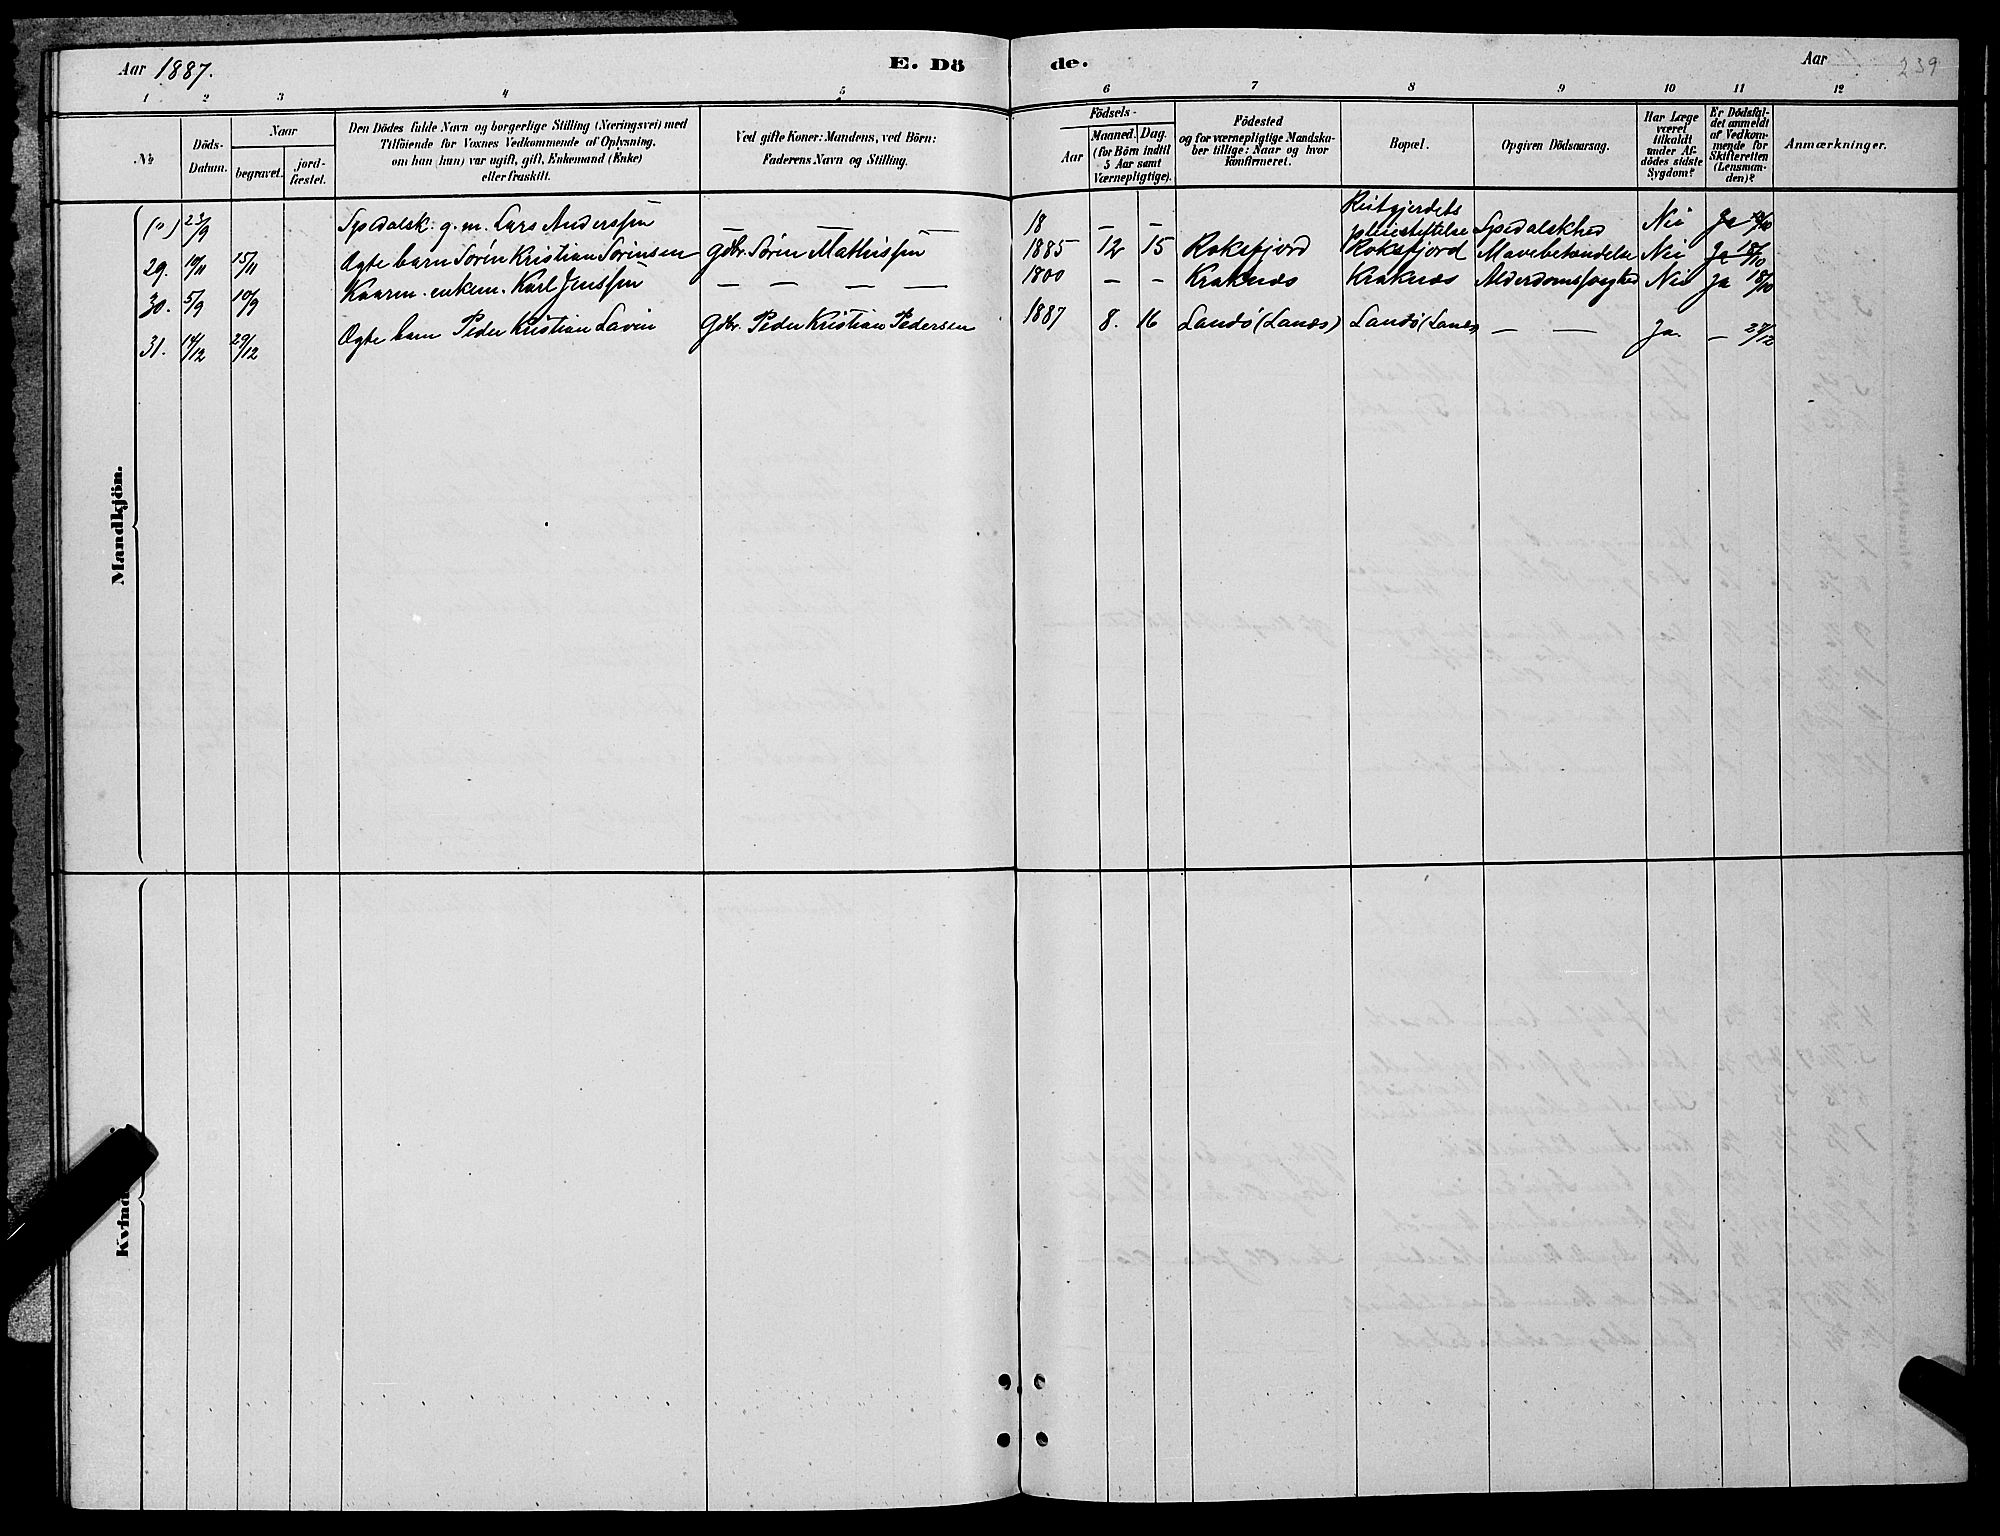 Aar 1887.
E. Dö
de.
Aar
239
1 2 3 4 5 6 7 8 9 10 11 12
No
Döds-
Datum.
Naar
begravet.
jord-
fæstet.
Den Dödes fulde Navn og borgerlige Stilling (Næringsvei) med
Tilföiende for Voxnes Vedkommende af Oplysning,
om han (hun) var ugift, gift, Enkemand (Enke)
eller fraskilt.
Ved gifte Koner: Mandens, ved Börn:
Faderens Navn og Stilling.
Födsels-
Aar
Maaned. Dag.
(for Börn indtil
5 Aar samt
Værnepligtige).
Födested
og for værnepligtige Mandska-
ber tillige: Naar og hvor
konfirmeret.
Bopæl.
Opgiven Dödsaarsag.
Har Læge
været
tilkaldt
under Af-
dödes sidste
Sygdom?
Er Dödsfal-
det anmeldt
af Vedkom-
mende for
Skifteretten
(Lensman-
den)?
Anmærkninger.
Mandkjön.
(") 23/9 Spedalsk: g.m. Lars Anderssen — — — 18 — — Reitgjerdets
pleiestiftelse Spedalskhed Nei Ja
29. 10/11 15/11 Ægte barn Sören Kristian Sörensen gdbr. Sören Mathissen 1885 12 15 Roksfjord Roksfjord Mavebetændelse Nei Ja
30. 5/9 10/9 Kaarm. enkem. Karl Jenssen — — — — — 1800 — — Kraknæs Kraknæs Alderdomssvaghed Nei Ja 18/10
31. 14/12 29/12 Ægte barn Peder Kristian Lavin Gdbr. Peder Kristian Pedersen 1887 8. 16 Landö (Lanes) Landö (Lanes) — — Ja. — 28/12
Kvind